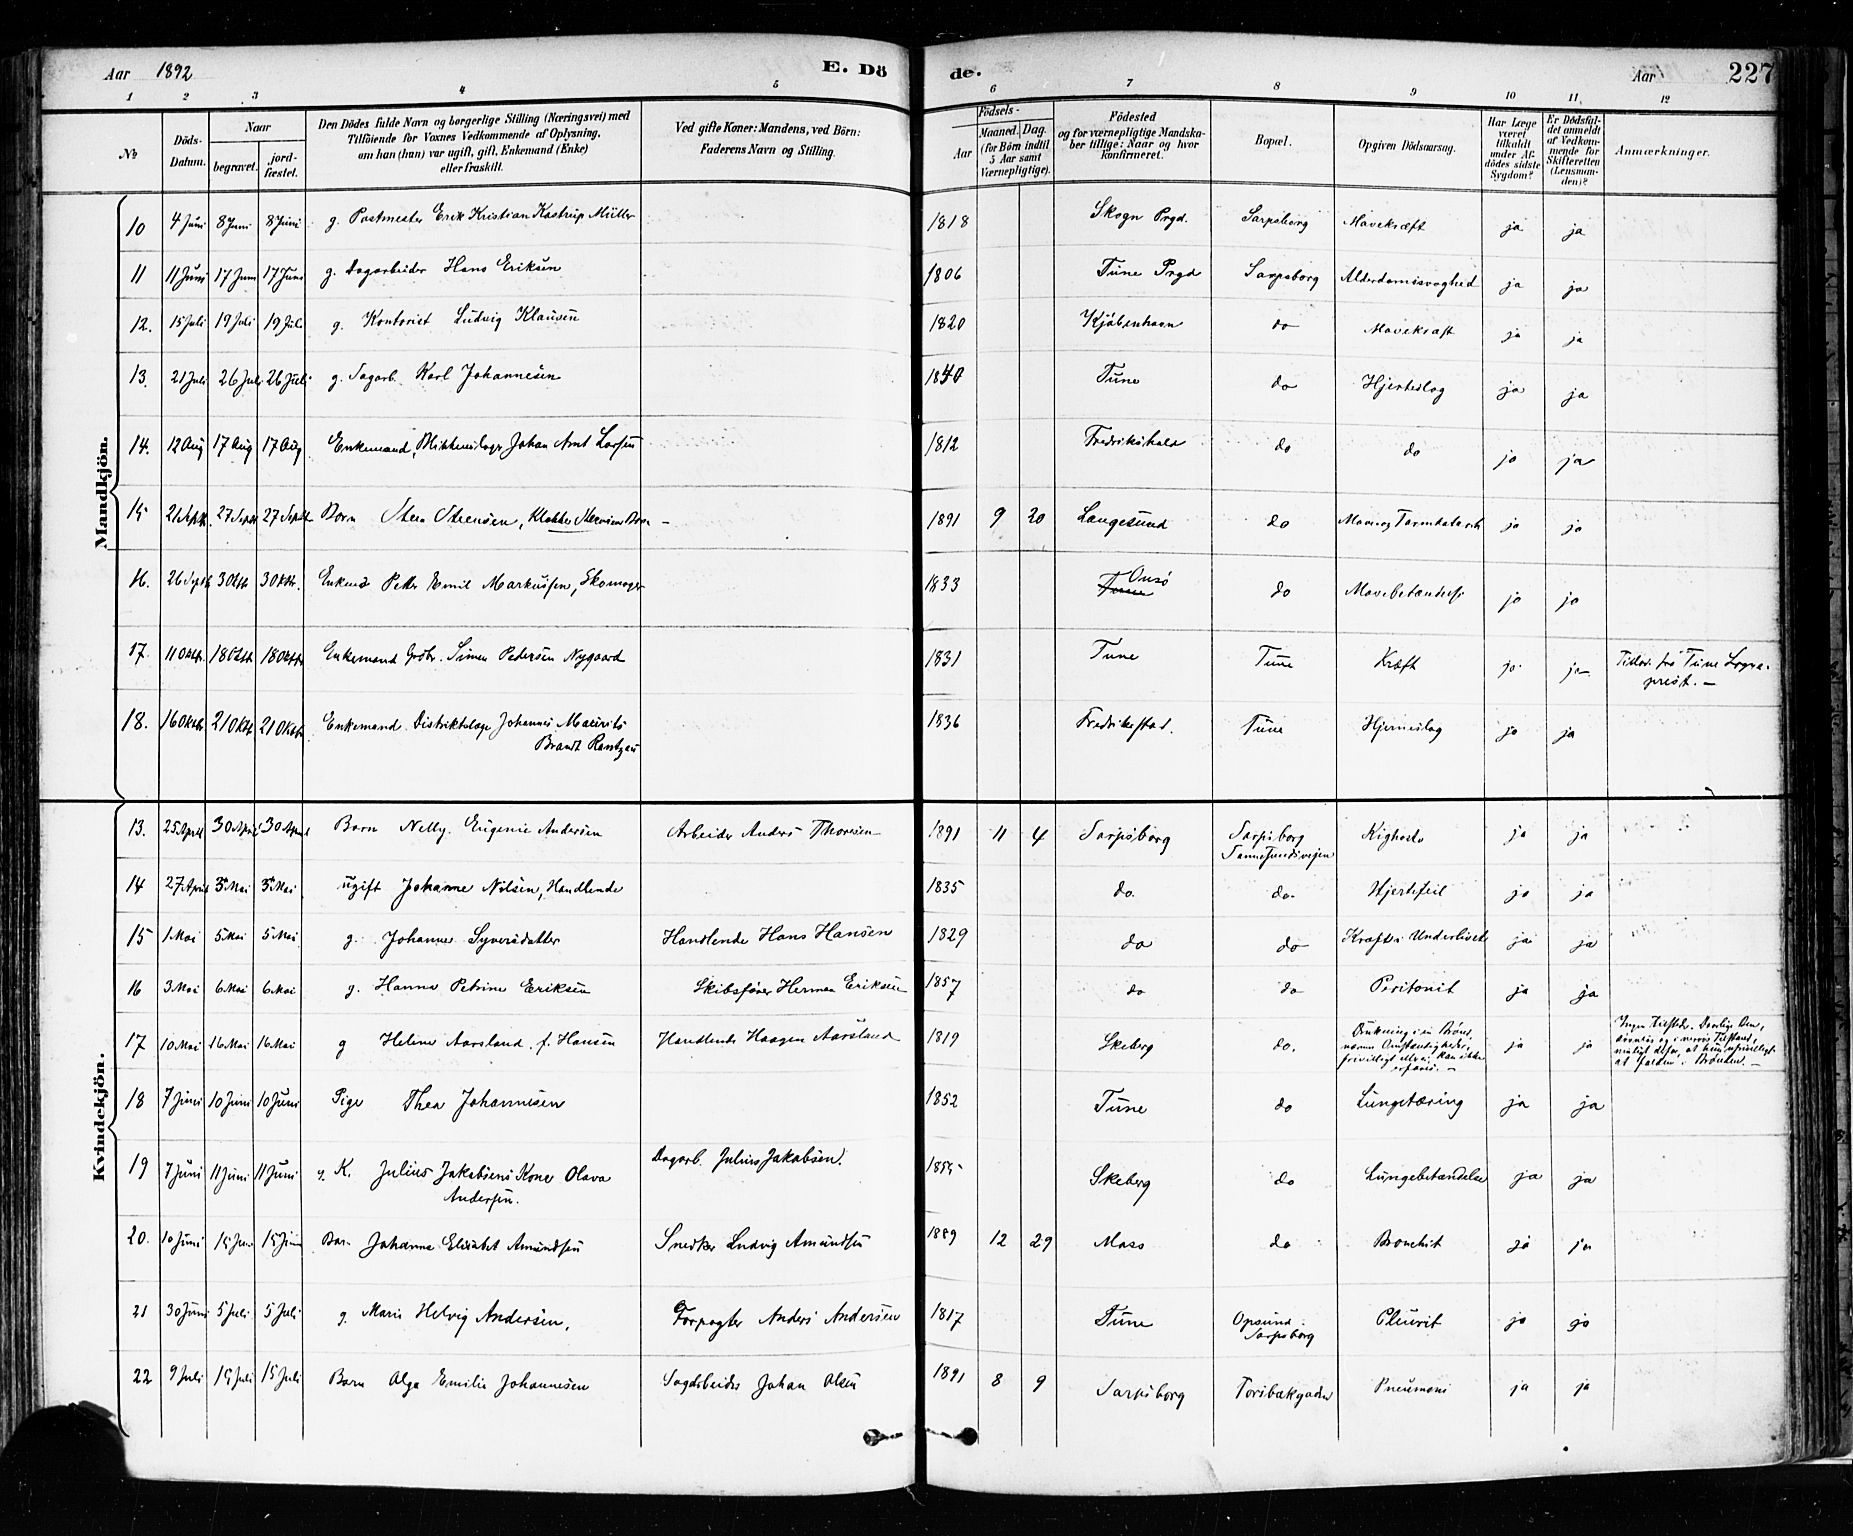 Aar 1892 E. Dö de. Aar 227
1 2 3 4 5 6 7 8 9 10 11 12
№
Döds-
Datum.
Naar
begravet.
jord-
fæstet.
Den Dödes fulde Navn og borgerlige Stilling (Næringsvei) med
Tilföiende for Voxnes Vedkommende af Oplysning,
om han (hun) var ugift, gift, Enkemand (Enke)
eller fraskilt.
Ved gifte Koner: Mandens, ved Börn:
Faderens Navn og Stilling.
Födsels-
Aar
Maaned. Dag.
(for Börn indtil
5 Aar samt
Værnepligtige).
Födested
og for værnepligtige Mandska-
ber tillige: Naar og hvor
konfirmeret.
Bopæl.
Opgiven Dödsaarsag.
Har Læge
været
tilkaldt
under Af-
dödes sidste
Sygdom?
Er Dödsfal-
det anmeldt
af Vedkom-
mende for
Skifteretten
(Lensman-
den)?
Anmærkninger.
Mandkjön.
10 4 Juni 8 Juni 8 Juni g. Postmester Erik Kristian Kastrup Müller 1818 Skogn Prgd. Sarpsborg Mavekræft ja ja
11 11 Juni 17 Juni 17 Juni g. Dagarbeider Hans Eriksen 1806 Tune Prgd Sarpsborg Alderdomssvaghed ja ja
12. 15 Juli 19 Juli 19 Juli g. Kontorist Ludvig Klausen 1820 Kjöbenhavn do Mavekræft ja ja
13. 21 Juli 26 Juli 26 Juli g. Sagarb. Karl Johannesen 1840 Tune do Hjerteslag ja ja
14. 12 Aug 17 Aug 17 Aug Enkemand, Blikkenslager Johan Arnt Larsen 1812 Fredrikshald do do ja ja
15 21 Septb. 27 Septb 27 Septb Barn 1891 9 20 Langesund do Mave og Tarmkatarrh ja ja
16. 26 Septb 3 Oktb 3 Oktb. Enkem Petter Emil Markussen, Skomager 1833 Onsö
Tune do Mavebetændelse ja ja
17. 11 Oktb. 18 Oktb 18 Oktb Enkemand Grdbr. Simen Pedersen Nygaard 1831 Tune Tune Kræft ja ja Tilst. fra Tune Sogne-
prest. —
18. 16 Oktb 21 Oktb 21 Oktb Enkemand Distriktslæge Johannes Mauritz
Brandt Rantzau 1836 Fredrikstad. Tune Hjerneslag ja ja
Kvindekjön.
13. 25 April 30 April 30 April Barn Nelly Eugenie Andersen Arbeider Anders Thoresen 1891 11 4 Sarpsborg Sarpsborg
Sannesundsveien Kighoste ja ja
14 27 April 3 Mai 3 Mai ugift Johanne Nilsen, Handlende 1835 do. do. Hjertefeil ja ja
15 1 Mai 5 Mai 5 Mai g. Johanne Syversdatter Handlende Hans Hansen 1829 do do Kræft i Underlivet ja ja
16 3 Mai 6 Mai 6 Mai g. Hanna Petrine Eriksen Skibsfører Herman Eriksen 1857 do do Peritonit ja ja
17 10 Mai 16 Mai 16 Mai g Helene Aarsland f. Hansen Handlende Haagen Aarsland 1819 Skeberg do. Drukning i en Brönd,
nærmere Omstændigheder,
frivilligt eller ei kan ikke
erfares. — ja ja
18 7 Juni 10 Juni 10 Juni Pige Thea Johannesen 1852 Tune do Lungetæring ja ja
19 7 Juni 11 Juni 11 Juni g. K. Julius Jakobsens Kone Olava
Andersen. Dagarb. Julius Jakobsen. 1855 Skeberg do Lungebetændelse ja ja
20. 10 Juni 15 Juni 15 Juni Barn Johanna Elisabet Amundsen Snedker Ludvig Amundsen 1889 12 29 Moss do Bronchit ja ja
21 30 Juni 5 Juli 5 Juli g. Marie Helvig Andersen. Forpagter Anders Andersen 1817 Tune Opsund
Sarpsborg Pleurit ja ja
22 9 Juli 15 Juli 15 Juli Barn Olga Emilie Johannesen Sagarbeider Johan Olsen 1891 8 9 Sarpsborg Torsbækgaden Pneumoni ja ja